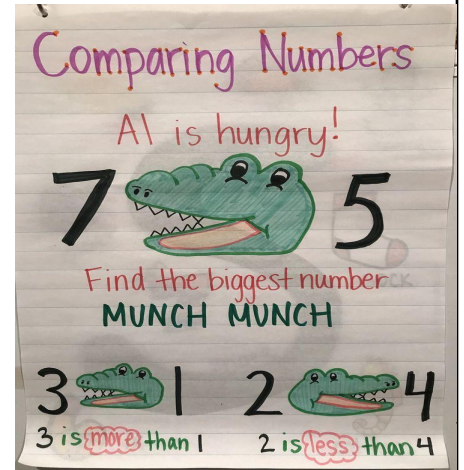 Comparing Numbers
Al is hungry!
7 5
Find the biggest number
MUNCH MUNCH
3 1 2 4
3 is more than 1 2 is less than 4